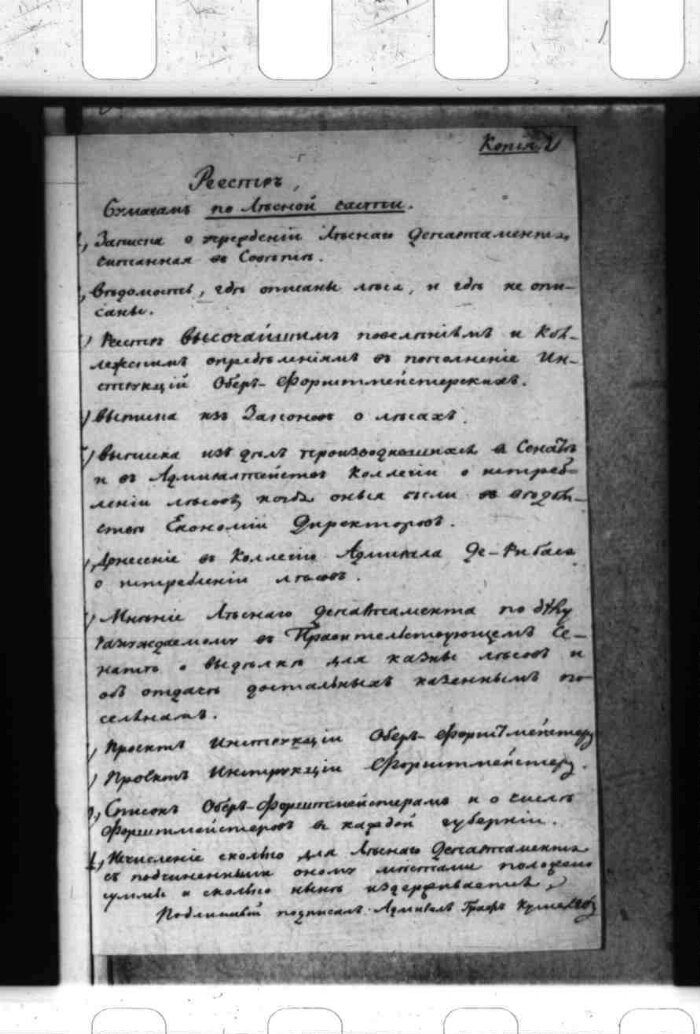 Копія
Реестръ,
Бумагамъ по лѣсной части.
1, Записка о учрежденіи Лѣснаго Департамента,
читанная въ Совѣтѣ.
2, Вѣдомость, гдѣ описаны лѣса, и гдѣ не опи-
саны.
) Реестръ Высочайшимъ повелѣніямъ и Кол-
лежскимъ опредѣленіямъ въ пополненіе Ин-
струкцій Оберъ-Форштмейстерскихъ.
) Выписка изъ Законовъ о лѣсахъ.
) Выписка изъ дѣлъ производившихся въ Сенатѣ
и въ Адмиралтействъ Коллегіи о истреб-
леніи лѣсовъ, когда оныя были въ вѣдом-
ствѣ Економіи Директоровъ.
) Донесеніе въ Коллегію Адмирала Де-Рибаса
о истребленіи лѣсовъ.
) Мнѣніе Лѣснаго Департамента по дѣлу
разсуждаемому въ Правительствующемъ Се-
натѣ о выдѣлкѣ для казны лѣсовъ и
объ отдачѣ достальныхъ казеннымъ по-
селянамъ.
) Проектъ Инструкціи Оберъ-Форштмейстеру
) Проектъ Инструкціи Форштмейстеру.
, Списокъ Оберъ-Форштмейстерамъ и о числѣ
Форштмейстеровъ въ каждой губерніи.
, Исчисленіе сколько для Лѣснаго Департамента
съ подчиненными оному мѣстами положено
суммы и сколько нынѣ издерживается.
Подлинный подписалъ Адмиралъ Графъ Кушелевъ